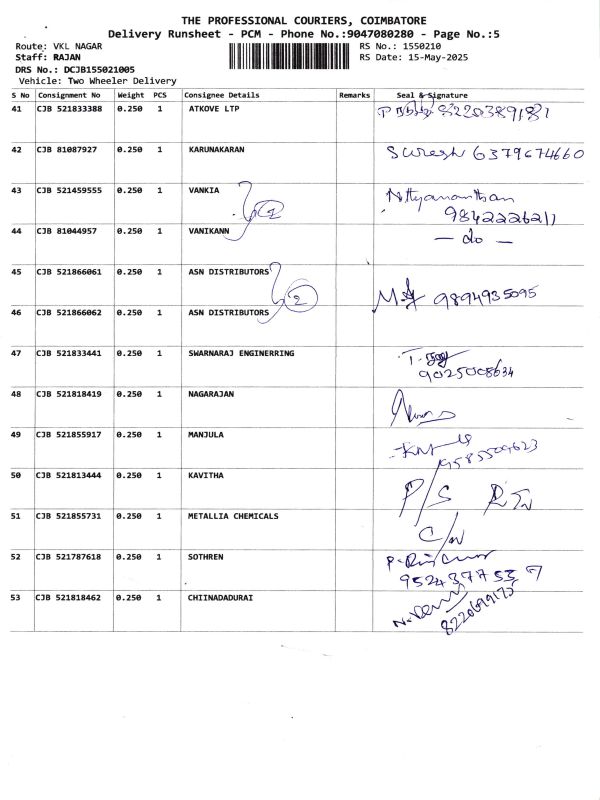 THE PROFESSIONAL COURIERS, COIMBATORE
Delivery Runsheet - PCM - Phone No.:9047080280 - Page No.:5
Route: VKL NAGAR RS No.: 1550210
Staff: RAJAN RS Date: 15-May-2025
DRS No.: DCJB155021005
Vehicle: Two Wheeler Delivery
S No Consignment No Weight PCS Consignee Details Remarks Seal & Signature
41 CJB 521833388 0.250 1 ATKOVE LTP
42 CJB 81087927 0.250 1 KARUNAKARAN Suresh 6379674660
43 CJB 521459555 0.250 1 VANKIA Nityananthan
2 9842226211
44 CJB 81044957 0.250 1 VANIKANN — do —
45 CJB 521866061 0.250 1 ASN DISTRIBUTORS
2 9894935095
46 CJB 521866062 0.250 1 ASN DISTRIBUTORS
47 CJB 521833441 0.250 1 SWARNARAJ ENGINERRING
9025008634
48 CJB 521818419 0.250 1 NAGARAJAN
49 CJB 521855917 0.250 1 MANJULA
9585509623
50 CJB 521813444 0.250 1 KAVITHA P/S
51 CJB 521855731 0.250 1 METALLIA CHEMICALS
52 CJB 521787618 0.250 1 SOTHREN
53 CJB 521818462 0.250 1 CHIINADADURAI